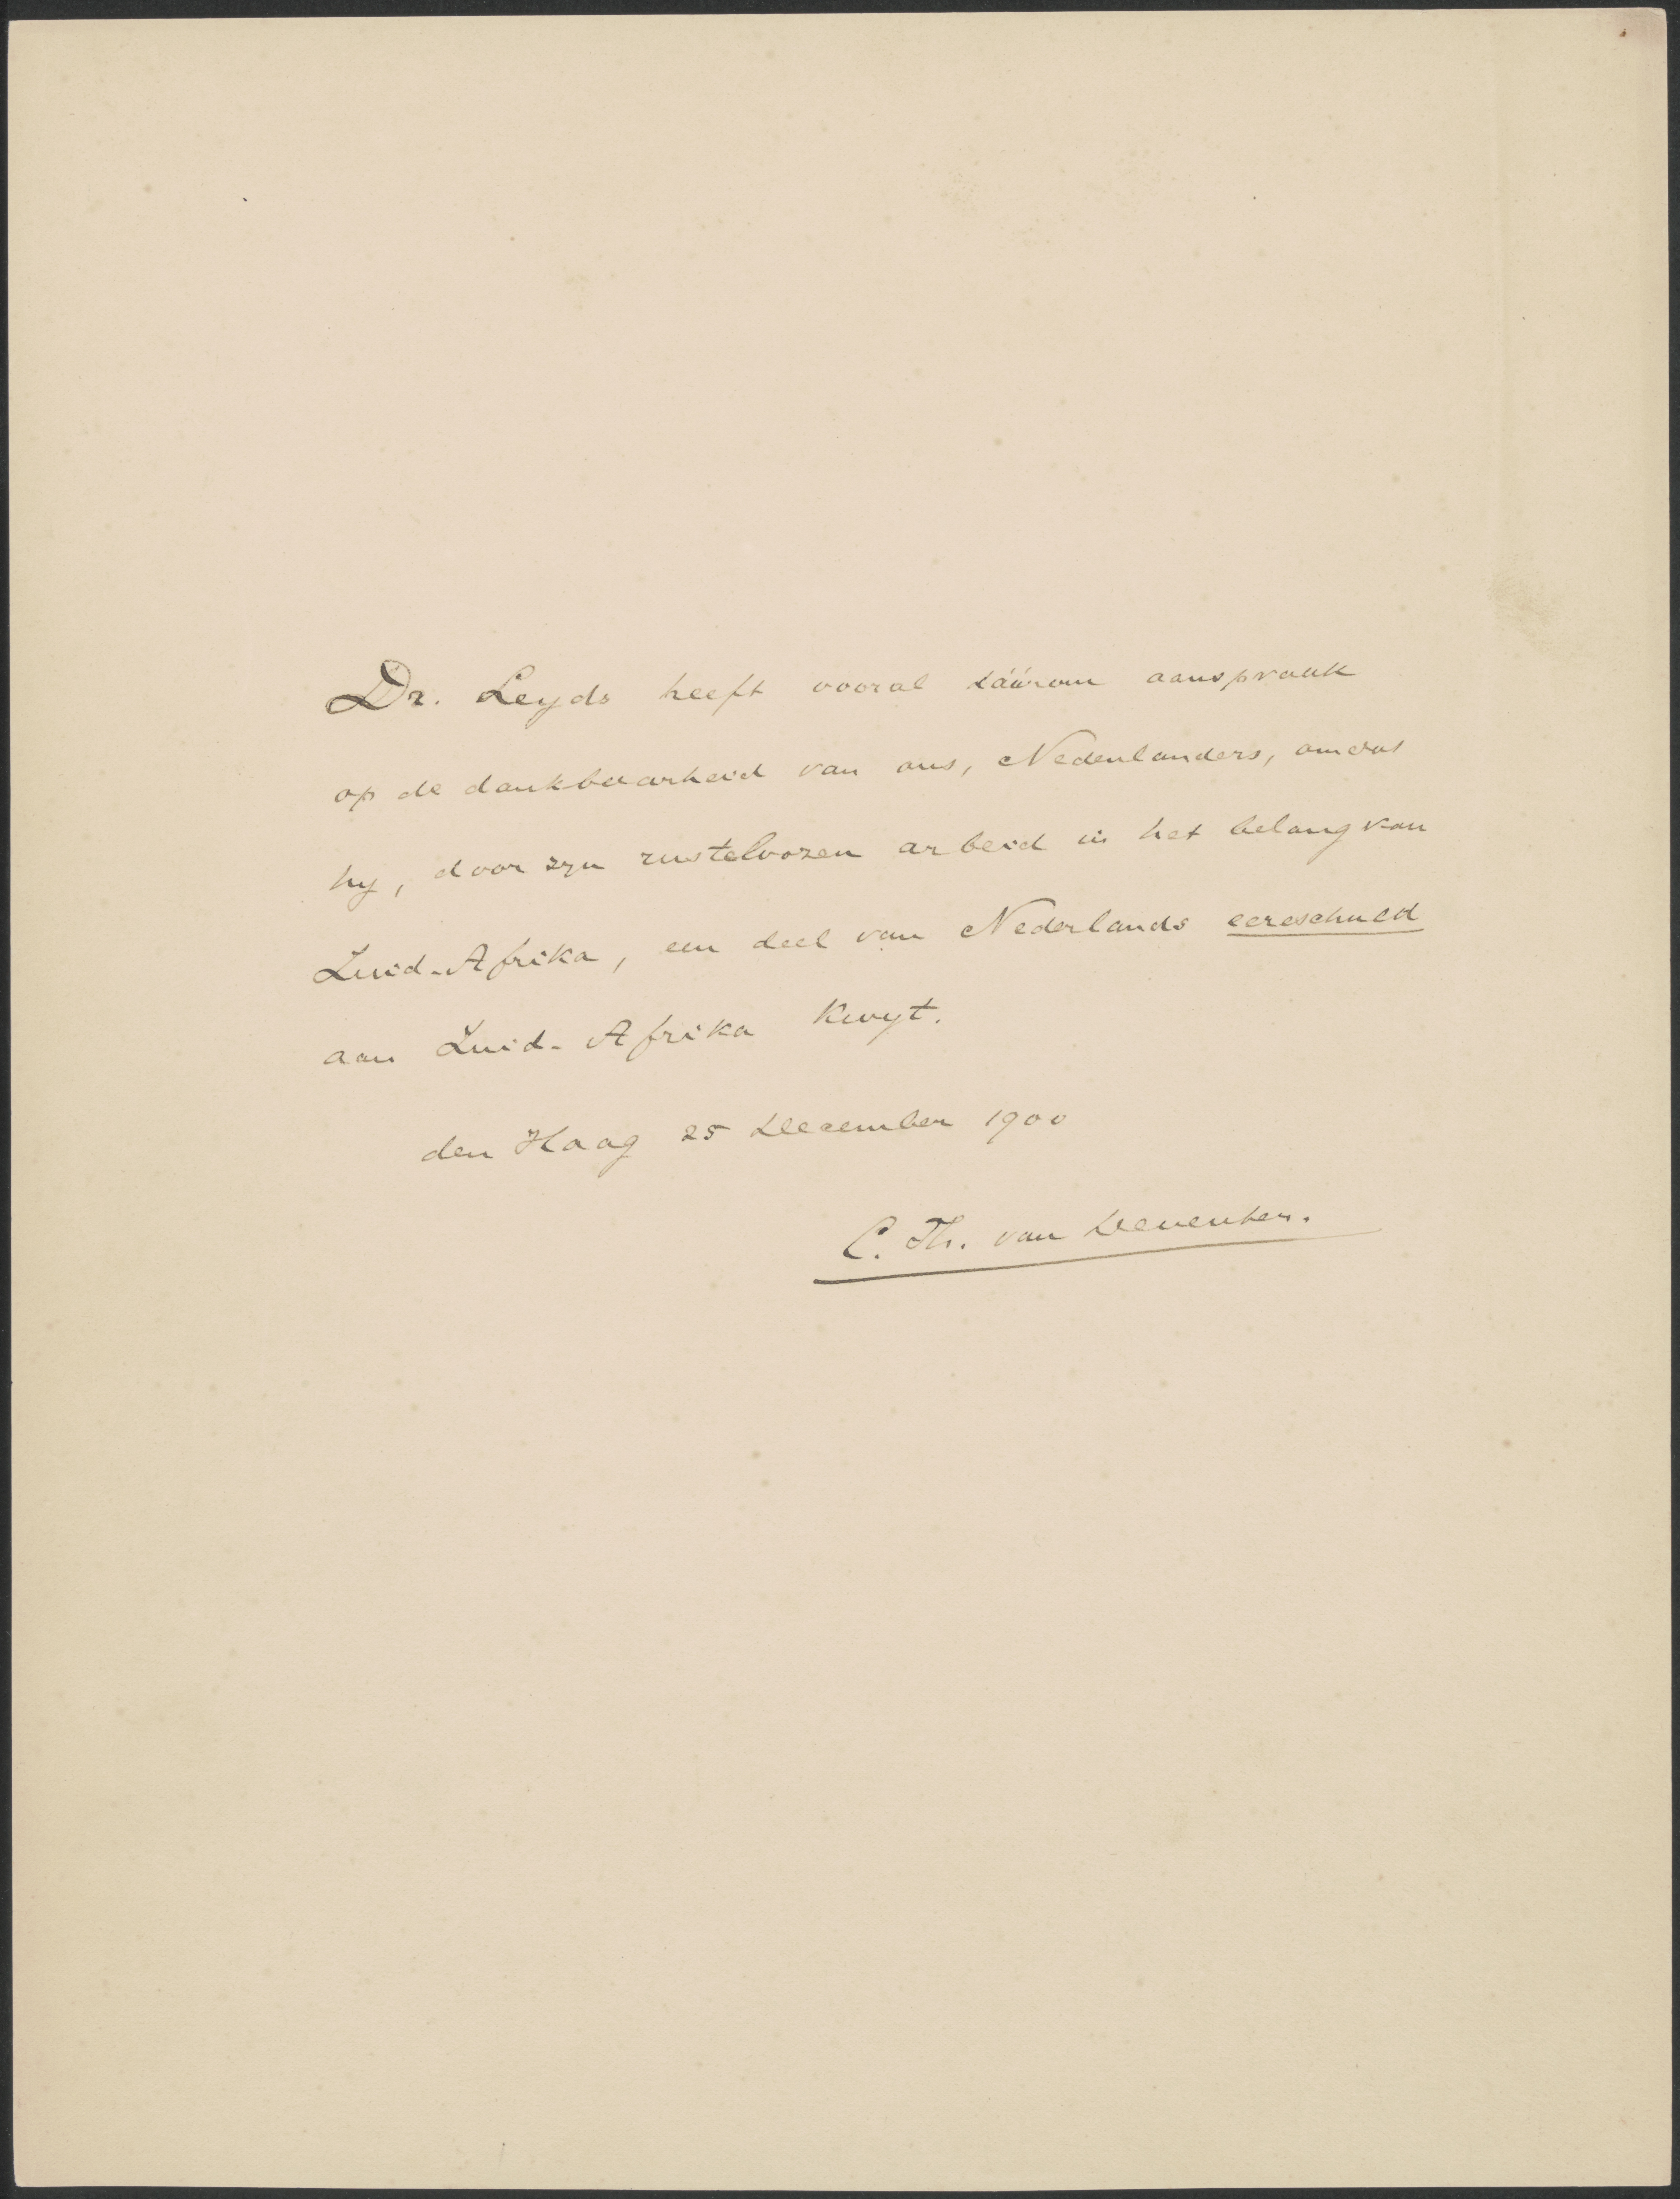 Dr. Leyds heeft vooral dáárom aanspraak
op de dankbaarheid van ons, Nederlanders, omdat
hij, door zijn rusteloozen arbeid in het belang van
Zuid-Afrika, een deel van Nederlands eereschuld
aan Zuid-Afrika kwijt.
den Haag 25 December 1900
C. Th. van Deventer.